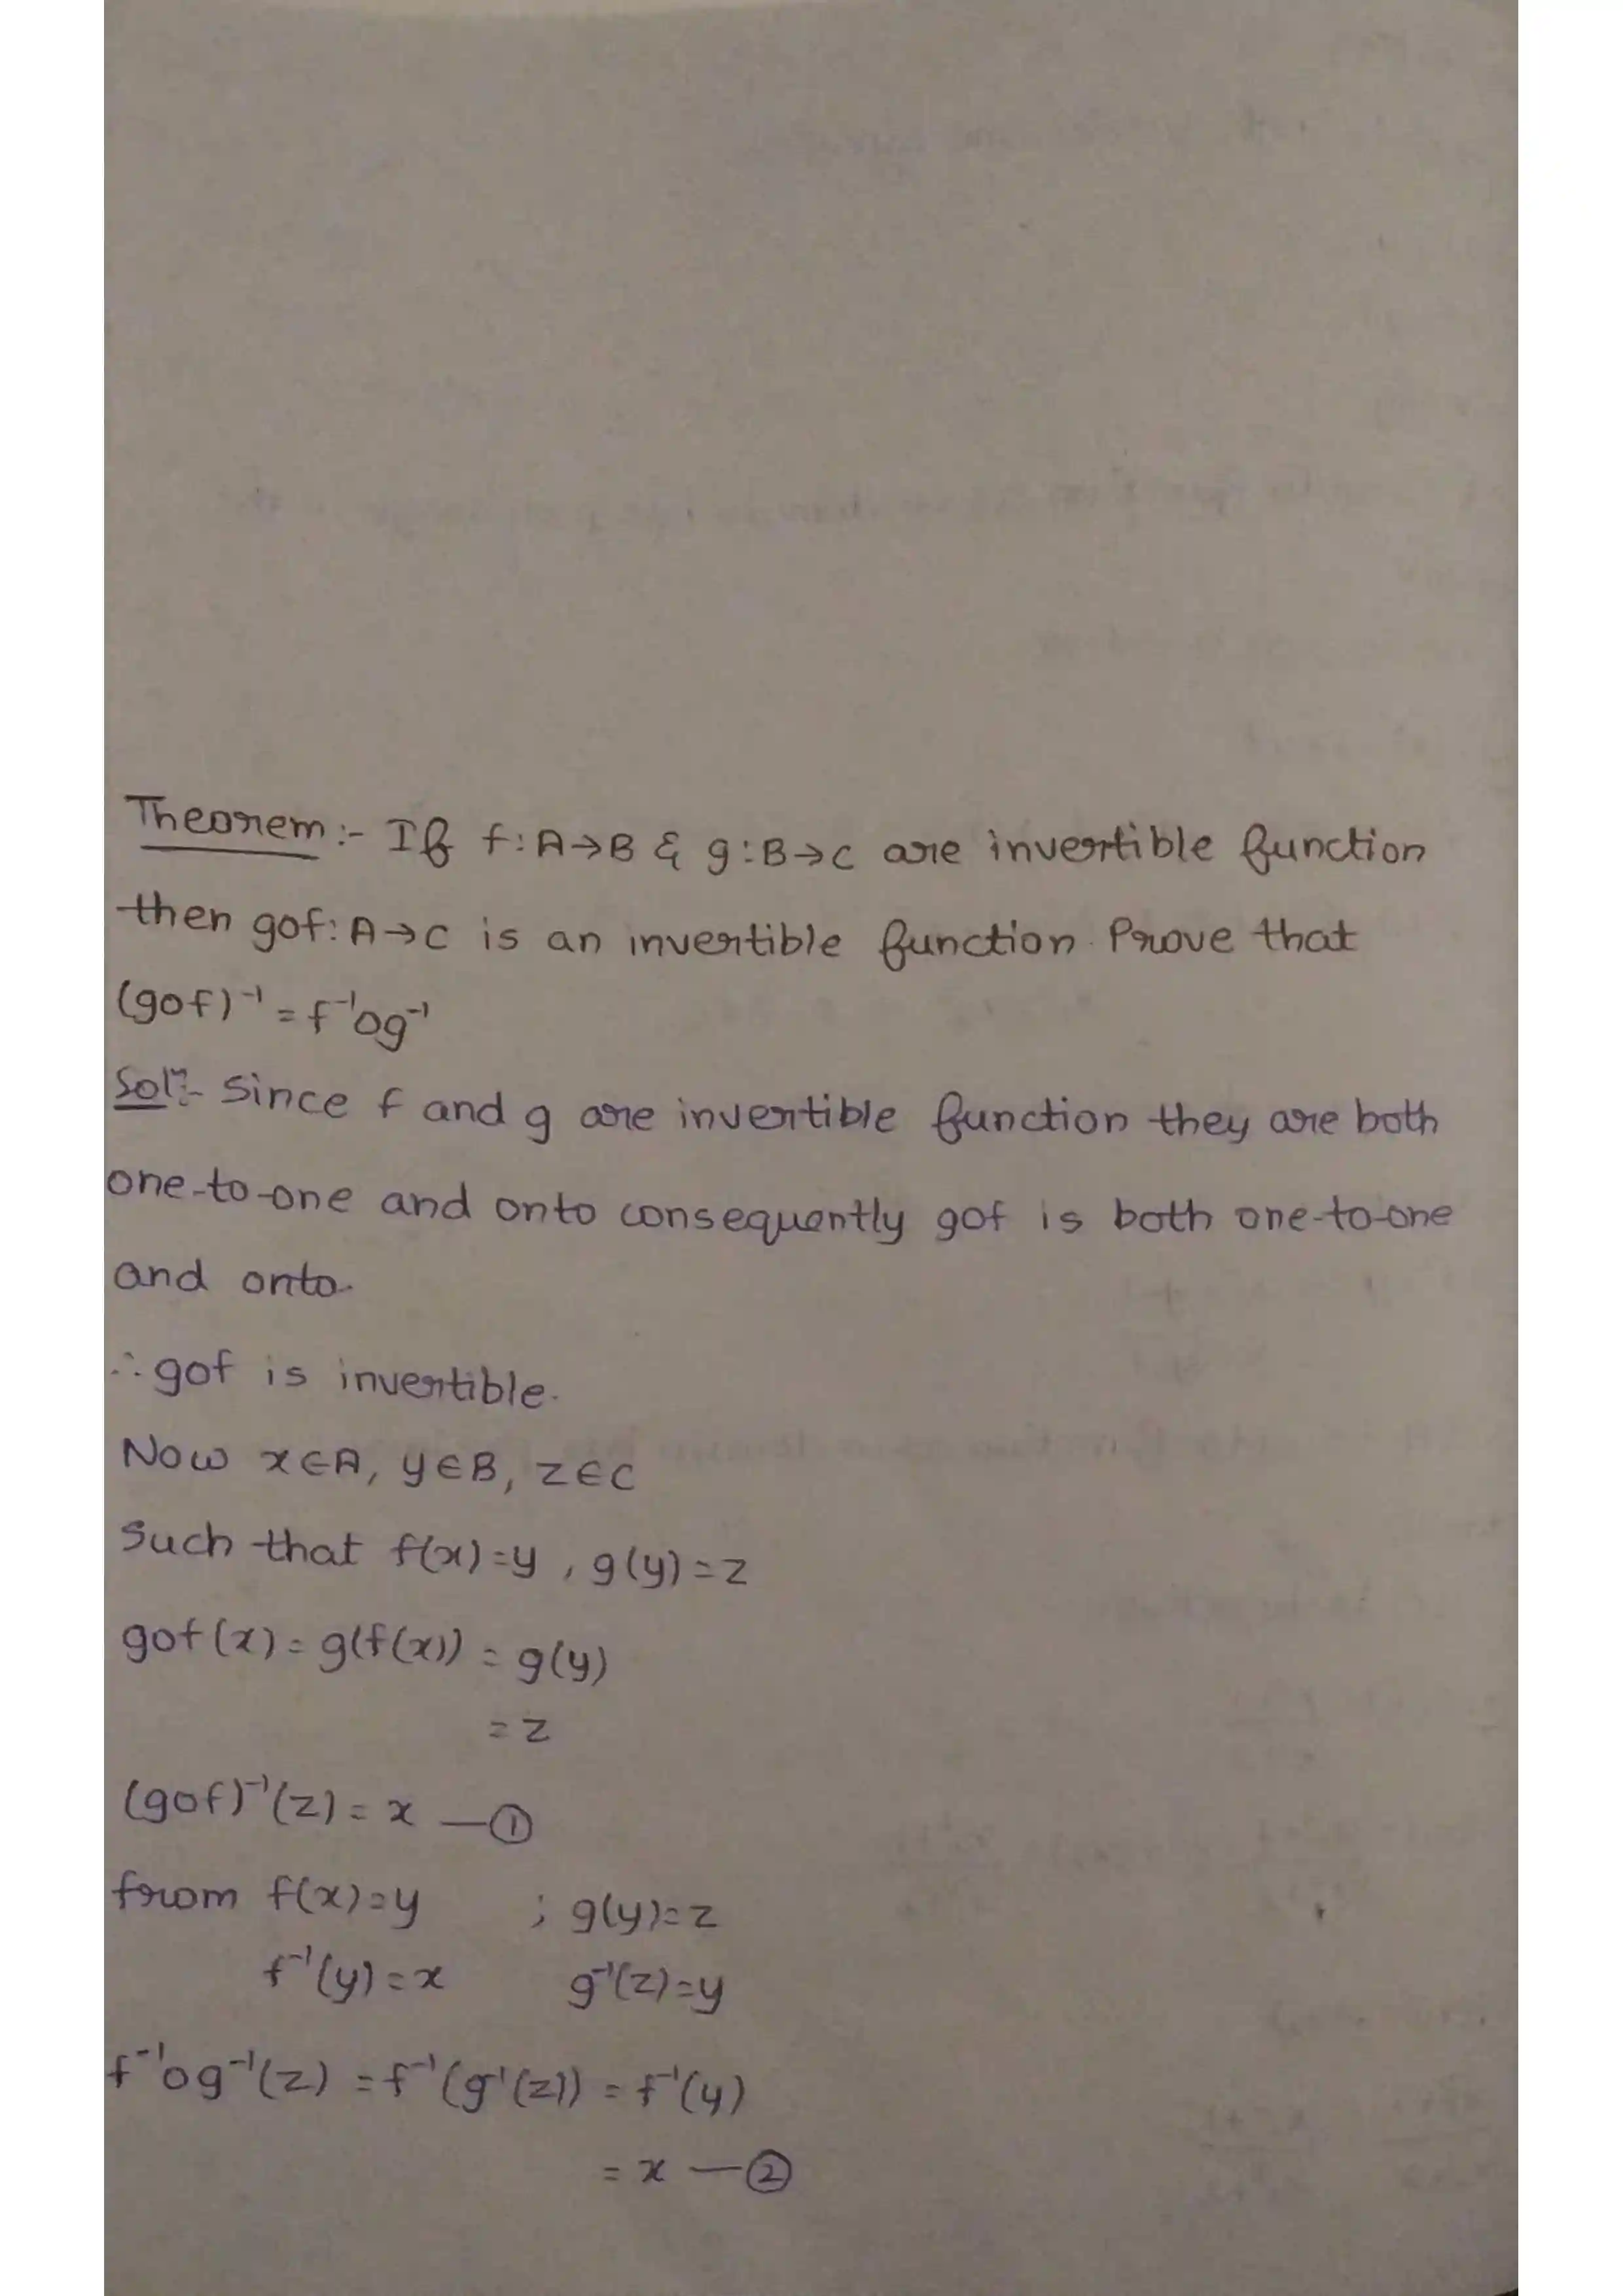 Theorem :- If f: A→B & g: B→C are invertible function
then gof: A→C is an invertible function. Prove that
(gof)⁻¹ = f⁻¹og⁻¹
Solⁿ:- Since f and g are invertible function they are both
one-to-one and onto consequently gof is both one-to-one
and onto.
∴ gof is invertible.
Now x∈A, y∈B, z∈C
Such that f(x)=y, g(y)=z
gof(x) = g(f(x)) = g(y)
= z
(gof)⁻¹(z) = x —①
from f(x)=y ; g(y)=z
f⁻¹(y)=x g⁻¹(z)=y
f⁻¹og⁻¹(z) = f⁻¹(g⁻¹(z)) = f⁻¹(y)
= x —②